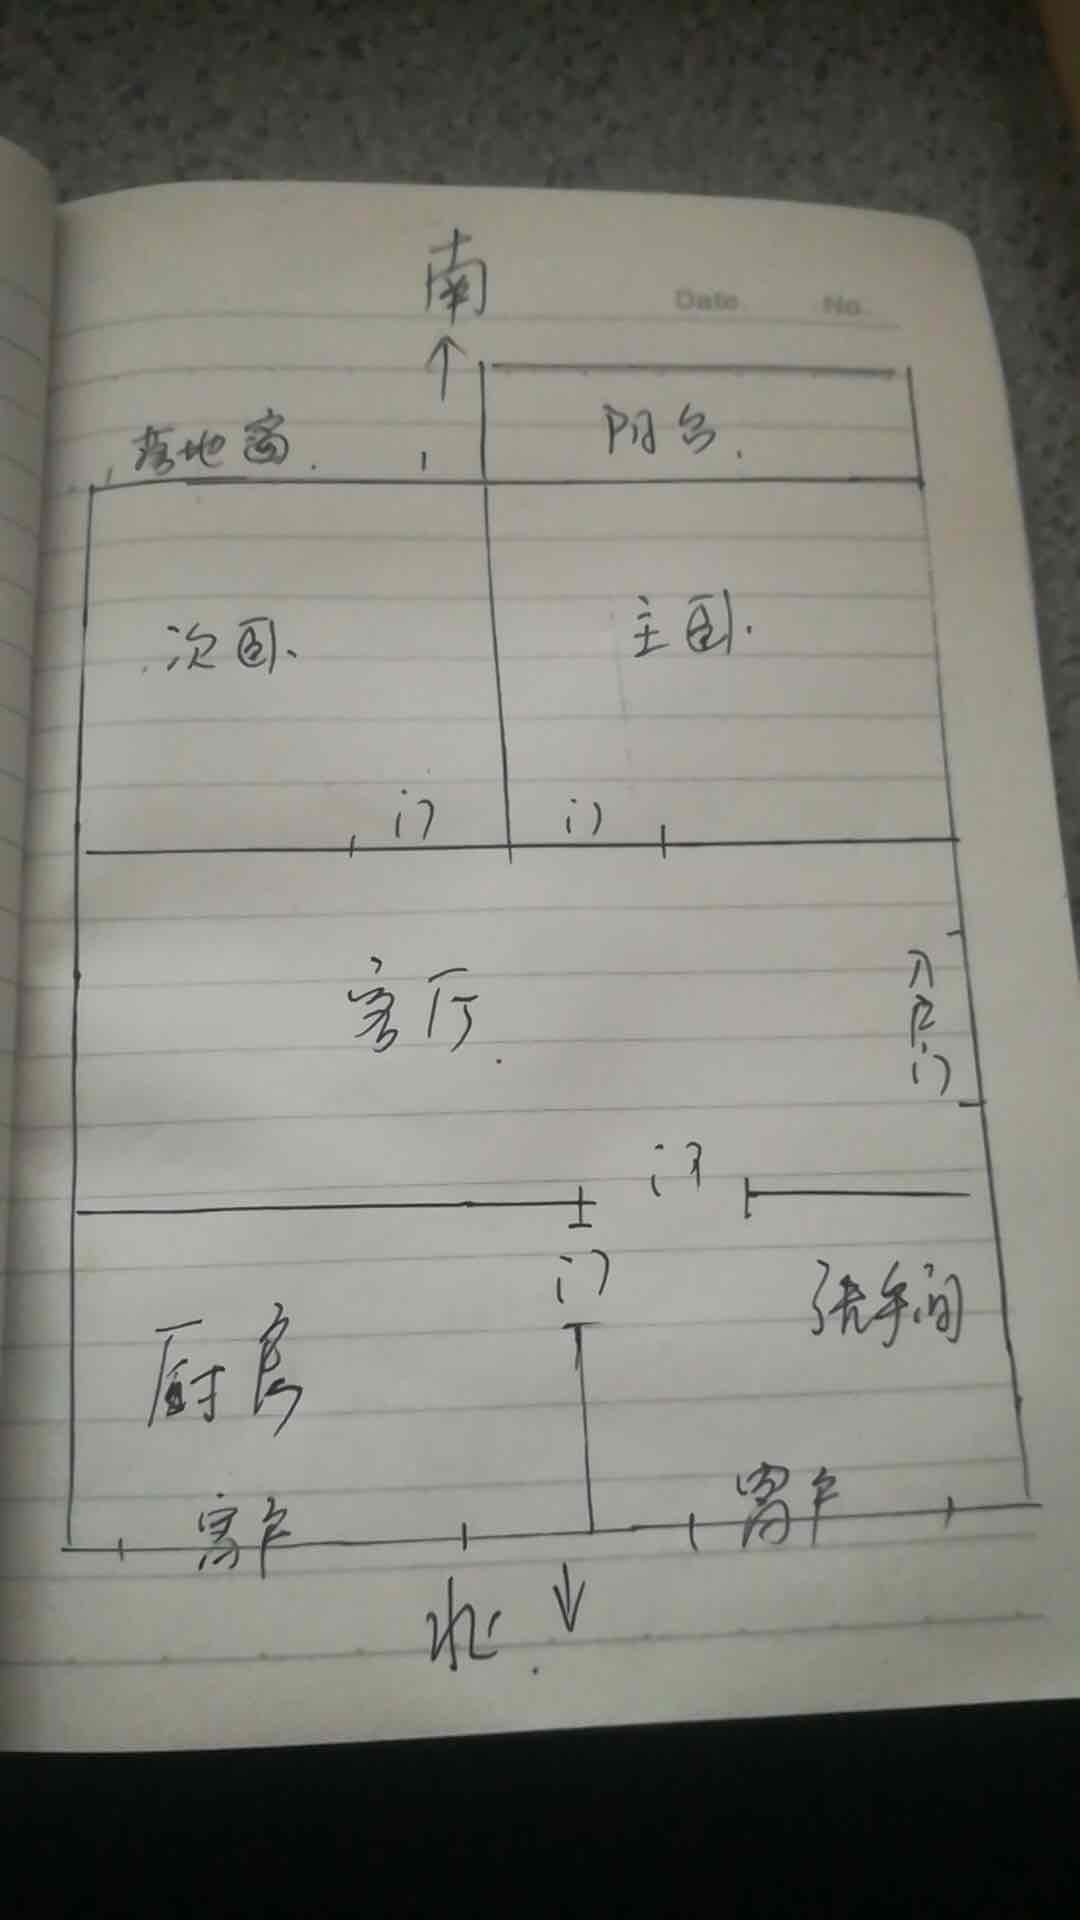 南
Date. No.
落地窗. 阳台.
次卧. 主卧.
门 门
客厅.
入户门
门
门
厨房 洗手间
窗户 窗户
北.